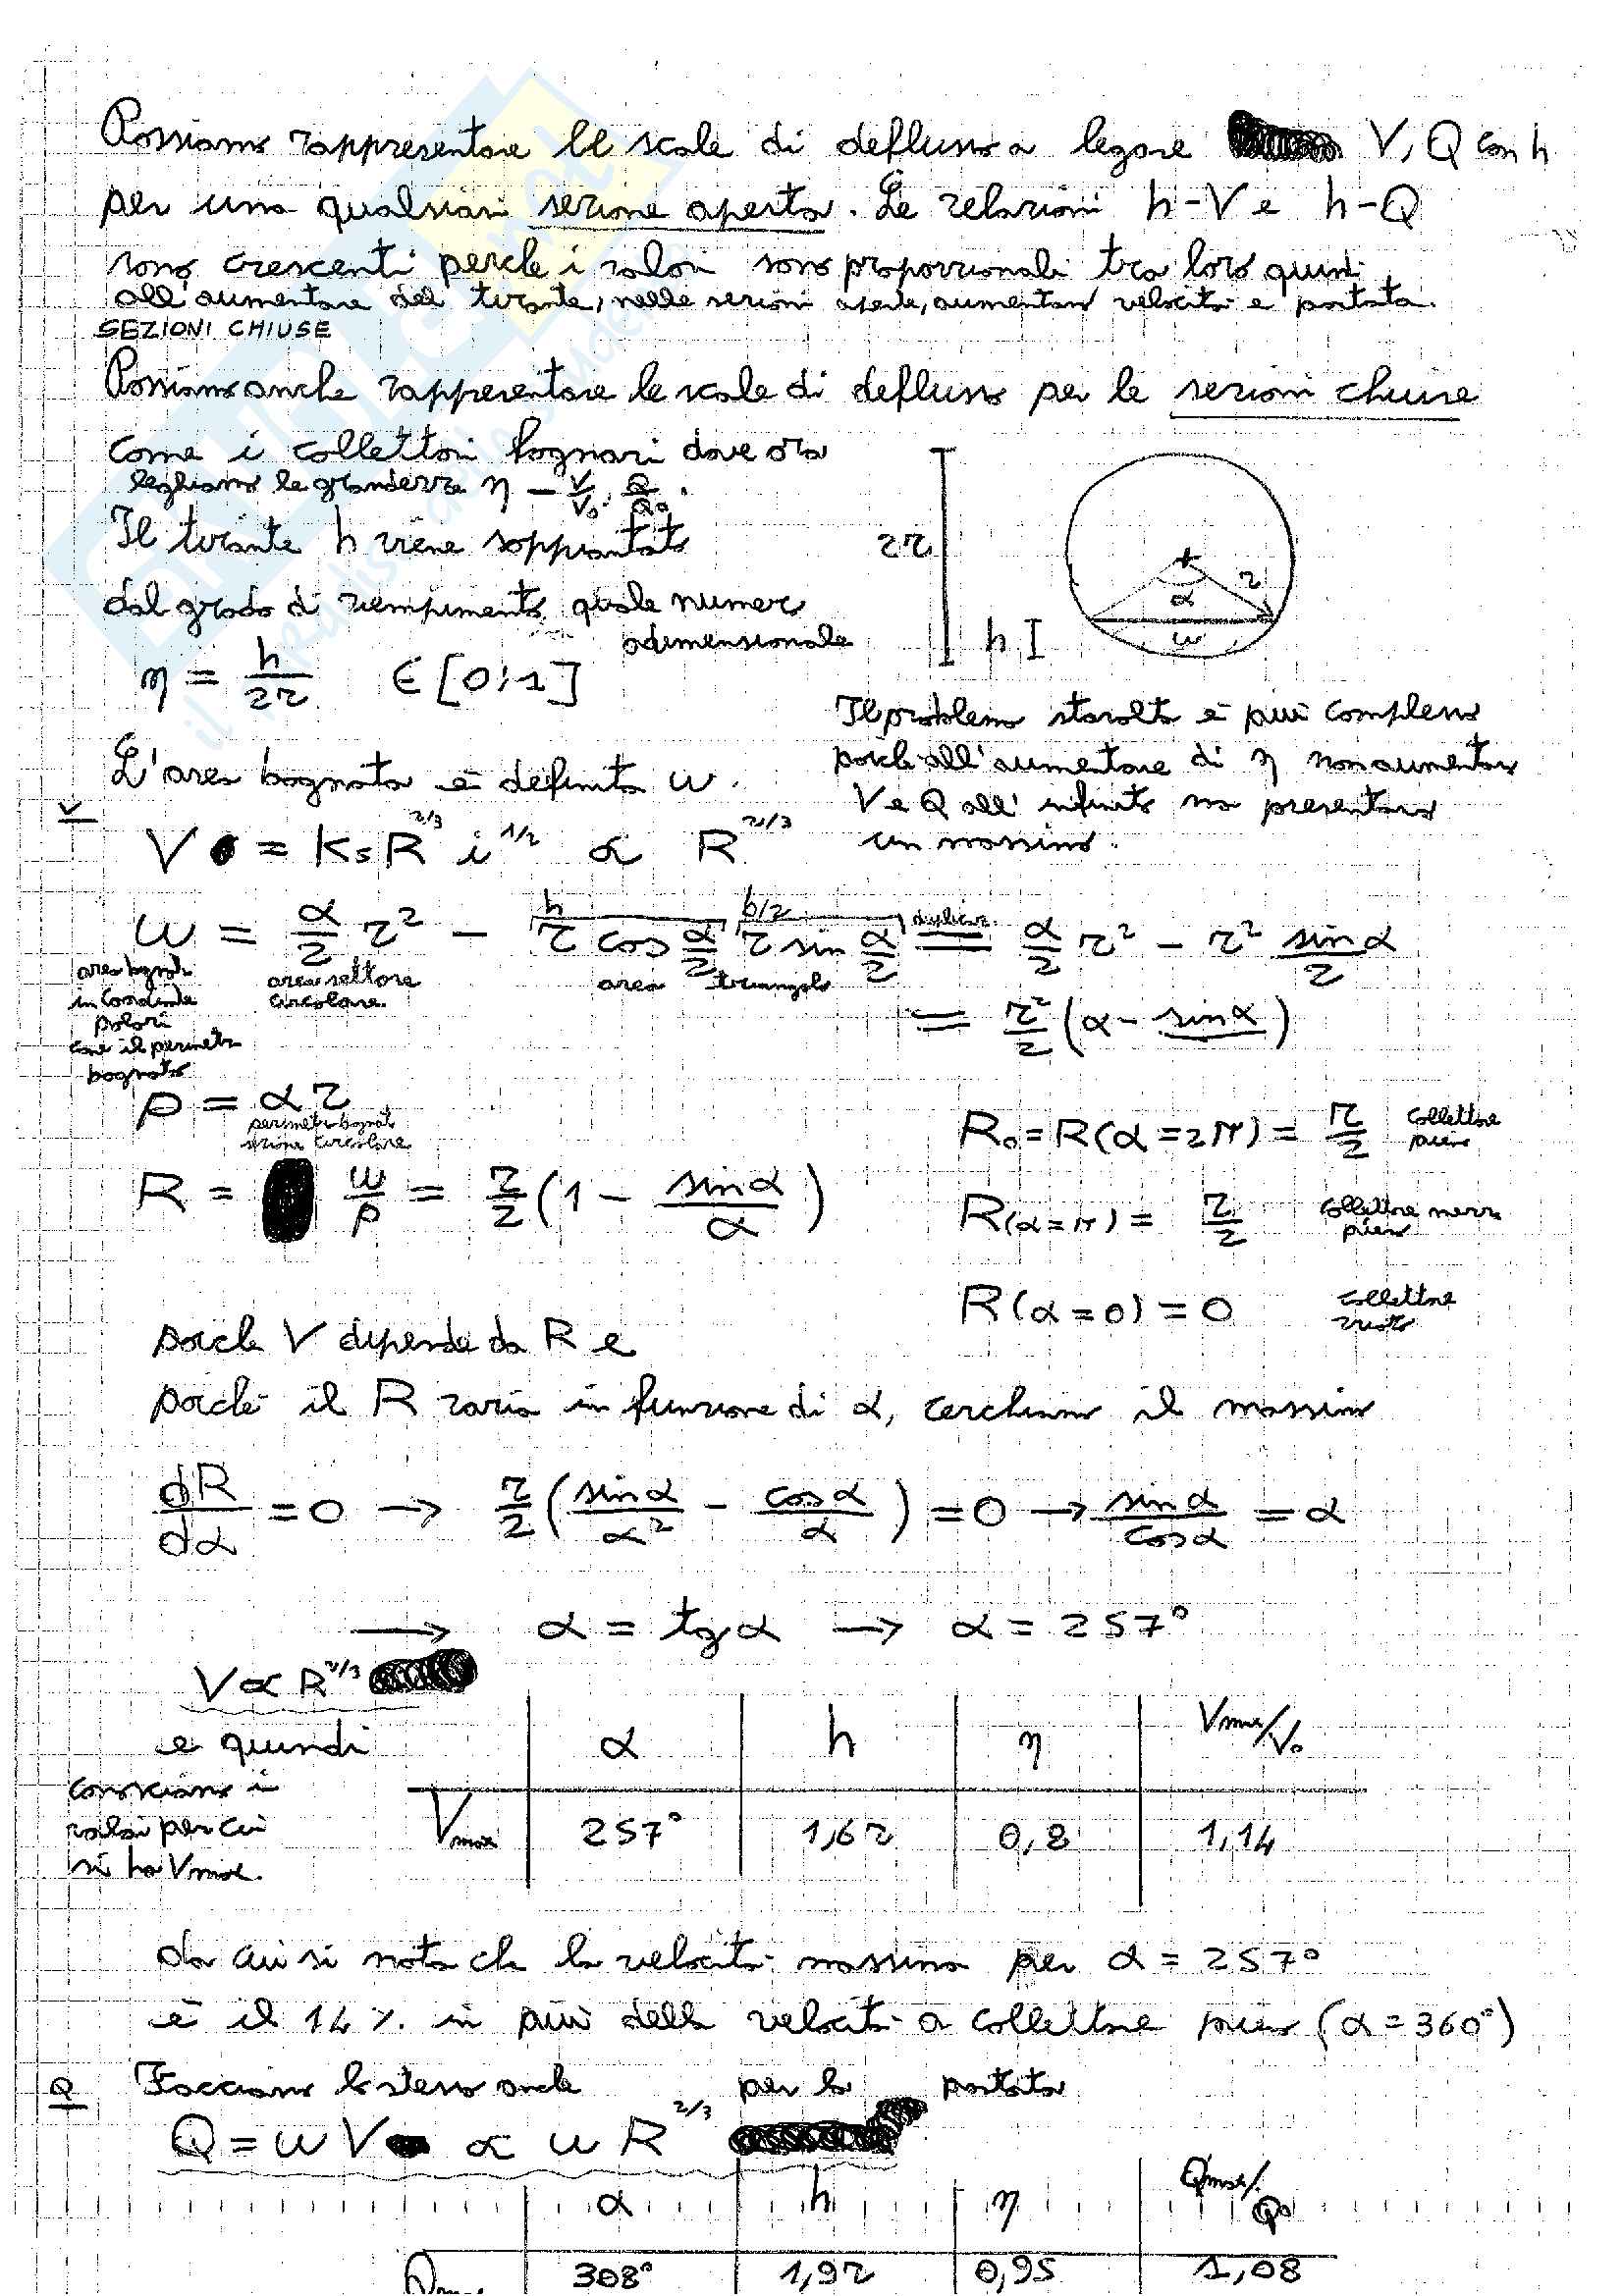 Possiamo rappresentare le scale di deflusso a legare V, Q con h
per una qualsiasi sezione aperta. Le relazioni h-V e h-Q
sono crescenti perche i valori sono proporzionali tra loro quindi
all'aumentare del tirante, nelle sezioni aperte, aumentano velocità e portata.
SEZIONI CHIUSE
Possiamo anche rappresentare le scale di deflusso per le sezioni chiuse
come i collettori fognari dove ora
leghiamo le grandezze η - V/V₀, Q/Q₀.
Il tirante h viene soppiantato
dal grado di riempimento quale numero
adimensionale
η = h/2r ∈ [0;1]
2r
h
r
α
w
Il problema stavolta è più complesso
poiche all'aumentare di η non aumentano
V e Q all'infinito ma presentano
un massimo.
L'area bagnata è definita w.
V
V = Ks R^2/3 i^1/2 ∝ R^2/3
h b/2
w = α/2 r² - r cos α/2 r sin α/2 = α/2 r² - r² sinα/2
area bagnata
in coordinate
polari
come il perimetro
bagnato
area settore
circolare
area triangolo
= r²/2 (α - sinα)
p = αr
perimetro bagnato
sezione circolare
R = w/p = r/2 (1 - sinα/α)
R₀ = R(α=2π) = r/2 collettore
pieno
R(α=π) = r/2 collettore mezzo
pieno
R(α=0) = 0 collettore
vuoto
poiche V dipende da R e
poichè il R varia in funzione di α, cerchiamo il massimo
dR/dα = 0 → r/2 (sinα/α² - cosα/α) = 0 → sinα/cosα = α
→ α = tgα → α = 257°
V ∝ R^2/3
e quindi
conosciamo i
valori per cui
si ha Vmax.
α h η Vmax/V₀
Vmax 257° 1,6r 0,8 1,14
da cui si nota che la velocità massima per α = 257°
è il 14% in più della velocità a collettore pieno (α = 360°)
Q
Facciamo lo stesso anche per la portata
Q = wV ∝ w R^2/3
α h η Qmax/Q₀
Qmax 308° 1,9r 0,95 1,08